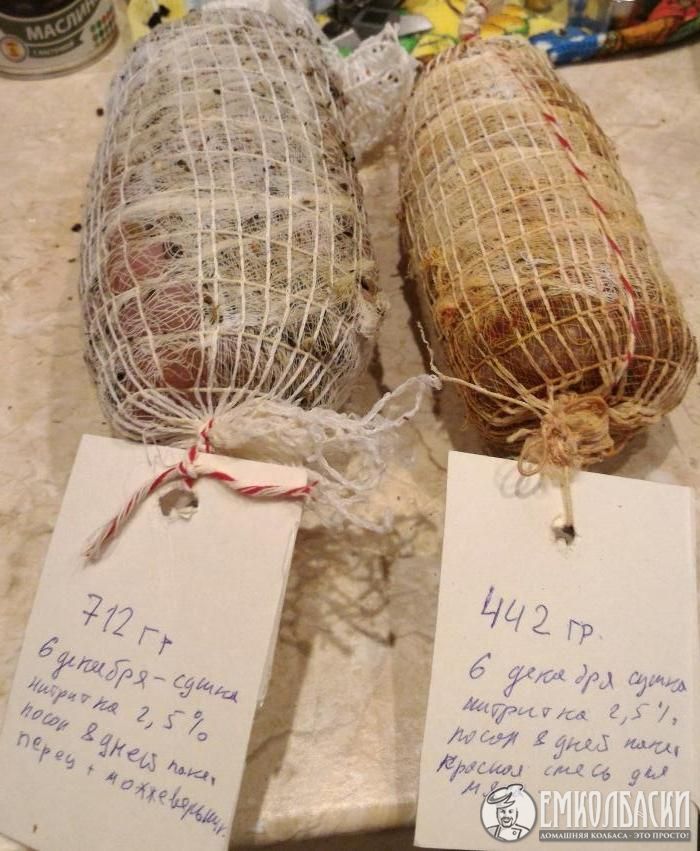 МАСЛИН
712 гр
6 декабря - сушка
нитритка 2,5%
посол 8 дней паке
перец + можжевельник
442 гр.
6 декабря сушка
нитритка 2,5%
посол 8 дней паке
Красная смесь для
мя
ЕМКОЛБАСКИ
ДОМАШНЯЯ КОЛБАСА - ЭТО ПРОСТО!